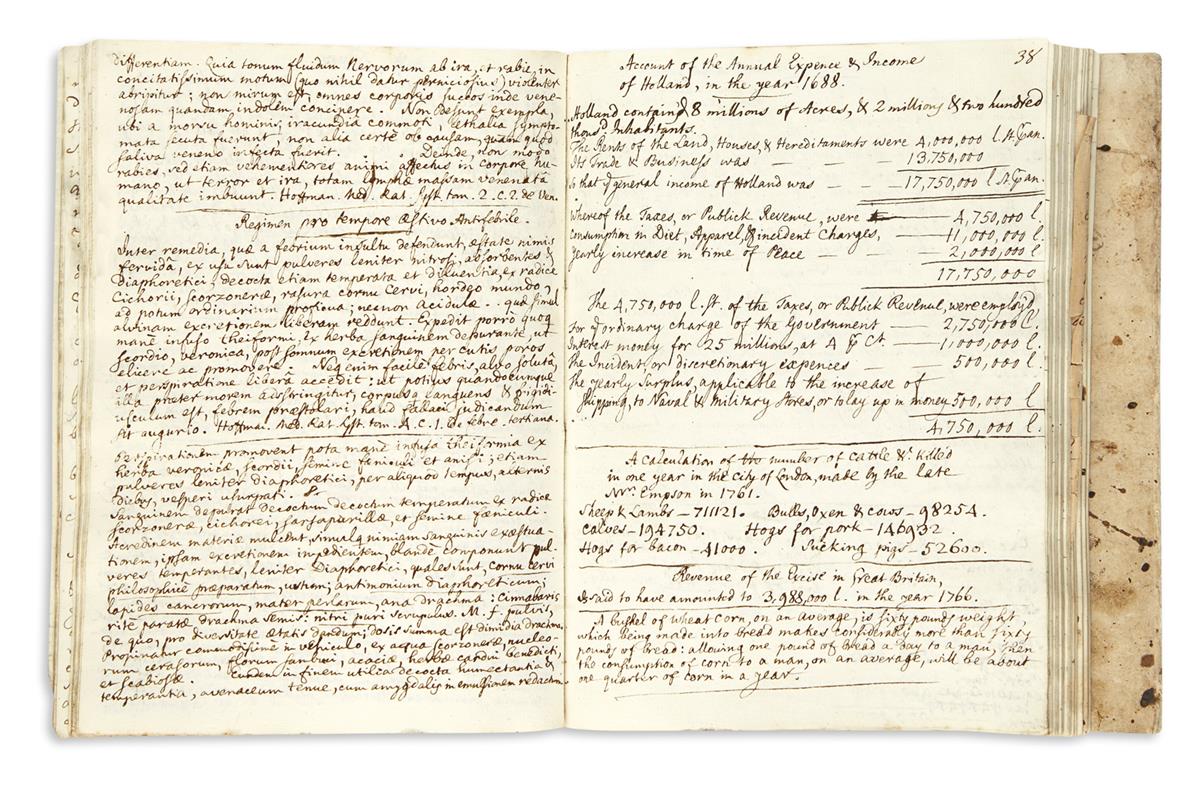 differentiam: Quia tonum fluidum Nervorum ab ira, et rabie, in
concitatissimum motum (quo nihil datur perniciosius) violenter
abripitur: non mirum est, omnes corporis succos inde vene-
nosam quandam indolem concipere. Non desunt exempla,
ubi a morsu hominis, iracundia commoti, lethalia sympto-
mata secuta fuerunt, non alia certe ob causam, quam quod
saliva veneno infecta fuerit. Deinde, non modo
rabies, sed etiam vehementiores animi affectus in corpore hu-
mano, ut terror et ira, totam lymphæ massam venenata
qualitate imbuunt. Hoffman. Med. Rat. Syst. tom. 2. C. 2. de Ven.
Regimen pro tempore æstivo Antifebrile.
Inter remedia, quæ a febrium insultu defendunt, æstate nimis
fervida, ex usu sunt pulveres leniter nitrosi, absorbentes &
Diaphoretici, decocta etiam temperata et diluentia, ex radice
Cichorii, Scorzoneræ, rasura cornu Cervi, hordeo mundo,
ad potum ordinarium proficua; nec non acidulæ . . quæ simul
alvinam excretionem liberam reddunt. Expedit porro quoq
mane infuso theiformi, ex herba sanguinem depurante, ut
Scordio, veronica, post somnum excretionem per cutis poros
elicere ac promovere. Neq enim facile febris, alvo soluta,
et perspiratione libera accedit: ut potius quandocunque
illa præter morem adstringitur, corpusq languens & rigidi-
usculum est, febrem præstolari, haud fallaci judicandum
sit augurio. Hoffman. Med. Rat. Syst. tom. 4. C. 1. De febre. tertiana.
Perspirationem promovent pota mane infusa theiformia ex
herba veronicæ, scordii, semine fæniculi et anisi; etiam
pulveres leniter diaphoretici, per aliquod tempus, alternis
diebus, vesperi usurpati.
Sanguinem depurat decoctum temperatum ex radice
Scorzoneræ, cichorei, sarsaparillæ, et semine fæniculi.
Acredinem materiæ mulcent, simulq nimiam sanguinis exæstua-
tionem, ipsam excretionem impedientem, blande componunt pul-
veres temperantes, leniter Diaphoretici, quales sunt, cornu cervi
philosophice præparatum, ustum; antimonium diaphoreticum;
lapides cancrorum, mater perlarum, ana drachma: Cinnabaris
rite paratæ drachma semis: nitri puri scrupulus. M. f. pulvis,
de quo, pro diversitate ætatis dandum; dosis summa est dimidia drachma.
Propinatur commodissime in vehiculo, ex aqua scorzoneræ, nucleo-
rum cerasorum, florum sambuci, acaciæ, herbæ cardui benedicti,
et scabiosæ. Eundem in finem utilia decocta humectantia &
temperantia, avenaceum tenue, cum amygdalis in emulsionem redactum
38
Account of the Annual Expence & Income
of Holland, in the year 1688.
Holland contain'd 8 millions of Acres, & 2 millions & two hundred
thous.d Inhabitants.
The Rents of the Land, Houses, & Hereditaments were 4,000,000 l. St. p an.
Its Trade & Business was — — — 13,750,000
So that ye general income of Holland was — — 17,750,000 l St. p an.
Whereof the Taxes, or Publick Revenue, were — 4,750,000 l.
Consumption in Diet, Apparel, & incident Charges, — 11,000,000 l.
Yearly increase in time of Peace — — 2,000,000 l
17,750,000
The 4,750,000 l. St. of the Taxes, or Publick Revenue, were employ'd
For ye ordinary charge of the Government — 2,750,000 l.
Interest money for 25 millions, at 4 p Ct. — 1,000,000 l.
The Incident, or discretionary expences — 500,000 l.
The yearly Surplus, applicable to the increase of
Shipping, to Naval & Military Stores, or to lay up in money 500,000 l
4,750,000 l.
A Calculation of the number of Cattle &c. kill'd
in one year in the City of London, made by the late
Mr. Empson in 1761.
Sheep & Lambs — 711121. Bulls, Oxen & cows — 98254.
Calves — 194750. Hogs for pork — 146932
Hogs for bacon — 41000. Sucking pigs — 52600.
Revenue of the Excise in Great Britain,
is said to have amounted to 3,988,000 l. in the year 1766.
A bushel of wheat corn, on an average, is sixty pounds weight,
which being made into bread makes considerably more than sixty
pounds of bread: allowing one pound of bread a day to a man, then
the consumption of corn to a man, on an average, will be about
one quarter of corn in a year.